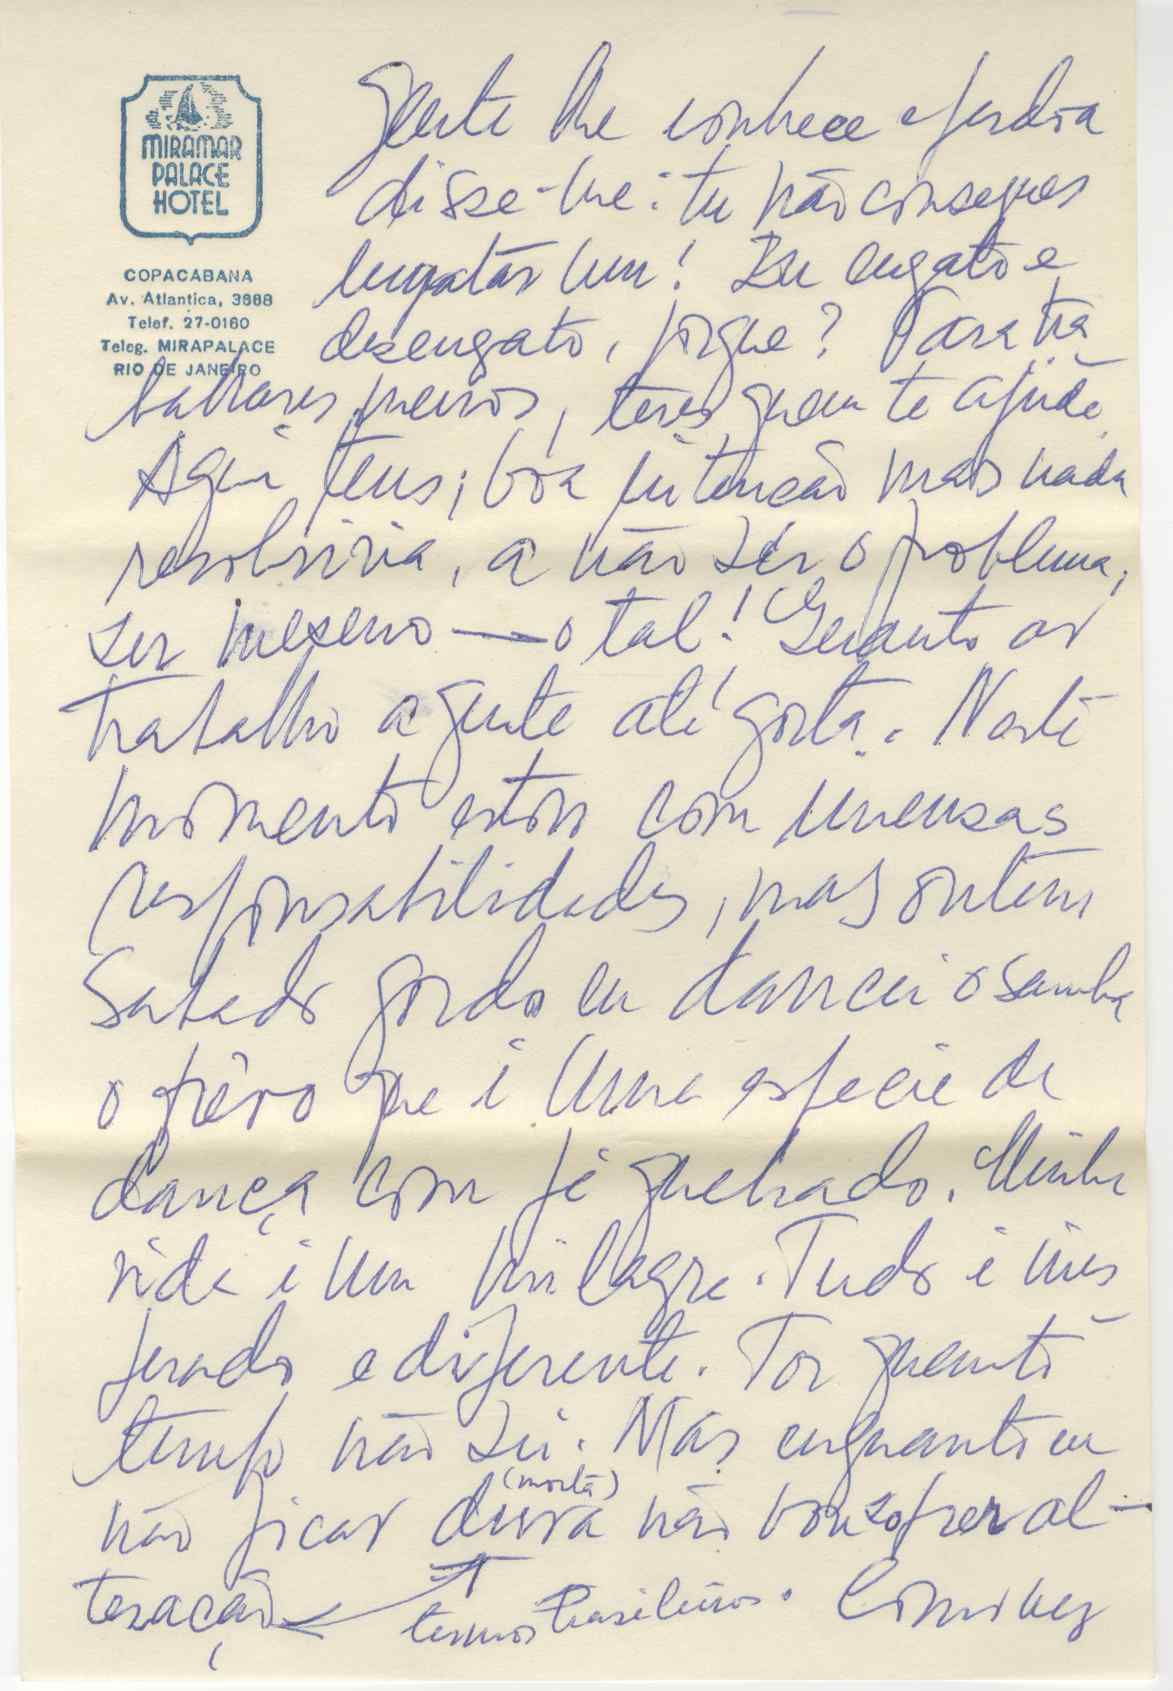 MIRAMAR
PALACE
HOTEL
COPACABANA
Av. Atlantica, 3668
Telef. 27-0160
Teleg. MIRAPALACE
RIO DE JANEIRO
gente me conhece e perdôa
disse-me: tu não consegues
engatar um! Eu engato e
desengato, porque? Para tra
balhares menos, teres quem te ajude.
Aqui tens; bôa intenção mas nada
resolviria, a não ser o problema,
ser mesmo — o tal! Quanto ao
trabalho a gente até gosta. Neste
momento estou com imensas
responsabilidades, mas ontem
Sabado gordo eu dancei o samba
o frêvo que é uma especie de
dança com pé quebrado. Minha
vida é um milagre. Tudo é ines
perado e diferente. Por quanto
tempo não sei. Mas enquanto eu
(morta)
não ficar dura não vou sofrer al-
teração termos brasileiros.